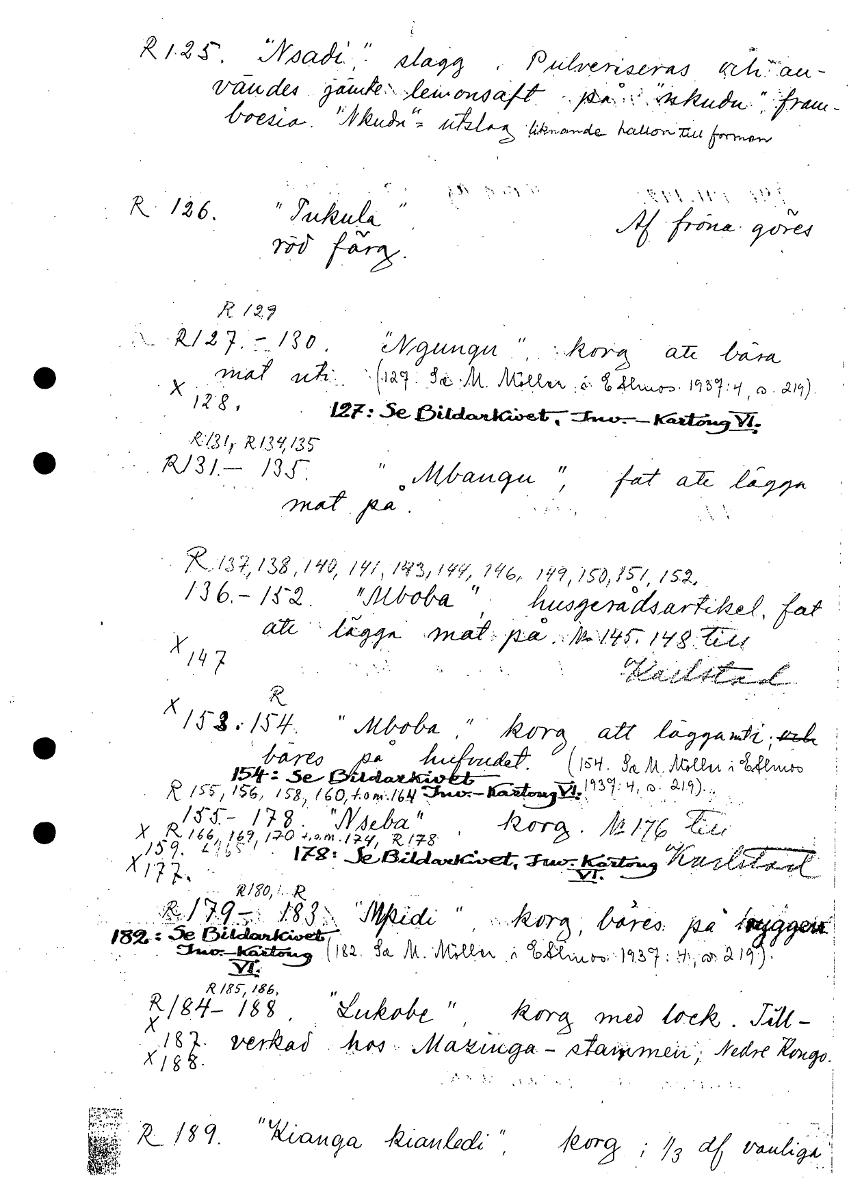 R 125. "Nsadi", slagg. Pulveriseras och an-
vändes jämte lemonsaft på "nkudu", fram-
boesia. "Nkudu" = utslag liknande hallon till formen
R 126. "Tukula". Af fröna göres
röd färg.
R 129
R 127.-130. "Ngungu", korg att bära
mat uti. (127. Se M. Möller i Ethnos 1937:4, s. 219)
X 128.
127: Se Bildarkivet, Inv.-Kartong VI.
R 131, R 134, 135
R 131.- 135. "Mbangu", fat att lägga
mat på.
R 137, 138, 140, 141, 143, 144, 146, 149, 150, 151, 152.
136.-152. "Mboba", husgerådsartikel, fat
att lägga mat på. No 145. 148 till
X 147 Karlstad
R
X 153. 154. "Mboba", korg att lägga uti, och
bäres på hufvudet. (154. Se M. Möller i Ethnos
154: Se Bildarkivet 1937:4, s. 219).
R 155, 156, 158, 160, t.o.m. 164 Inv.-Kartong VI.
155-178. "Nseba", korg. No 176 till
X R 166, 169, 170 t.o.m. 174, R 178
159. 178: Se Bildarkivet, Inv. Kartong Karlstad
X 177. VI.
R 180, R
R 179- 183 "Mpidi", korg, bäres på ryggen
182: Se Bildarkivet
Inv.-Kartong (182 Se M. Möller i Ethnos 1937:4, s. 219).
VI.
R 185, 186.
R 184- 188. "Lukobe", korg med lock. Till-
X 187. verkad hos Mazinga-stammen, Nedre Kongo.
X 188.
R 189. "Kianga kianledi", korg, 1/3 af vanliga